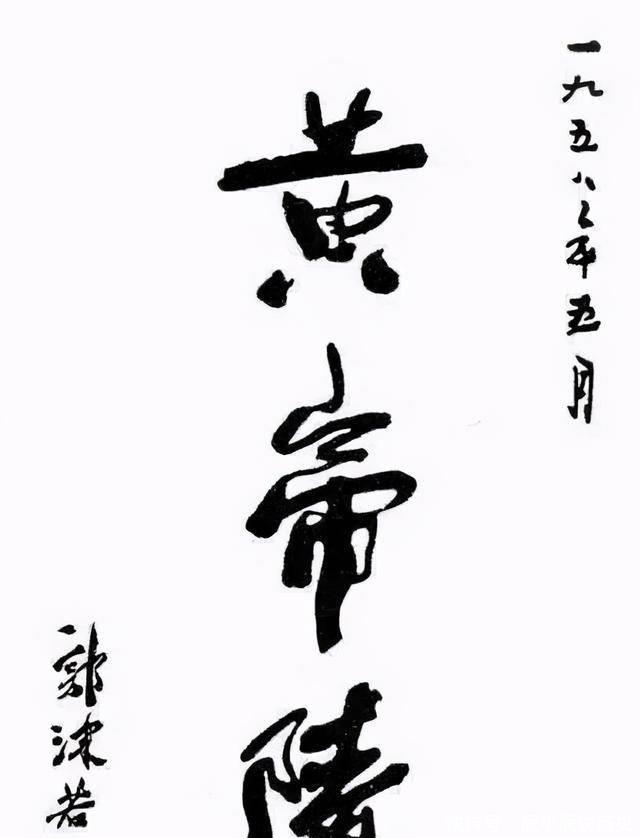 一九五八年五月
黄帝陵
郭沫若